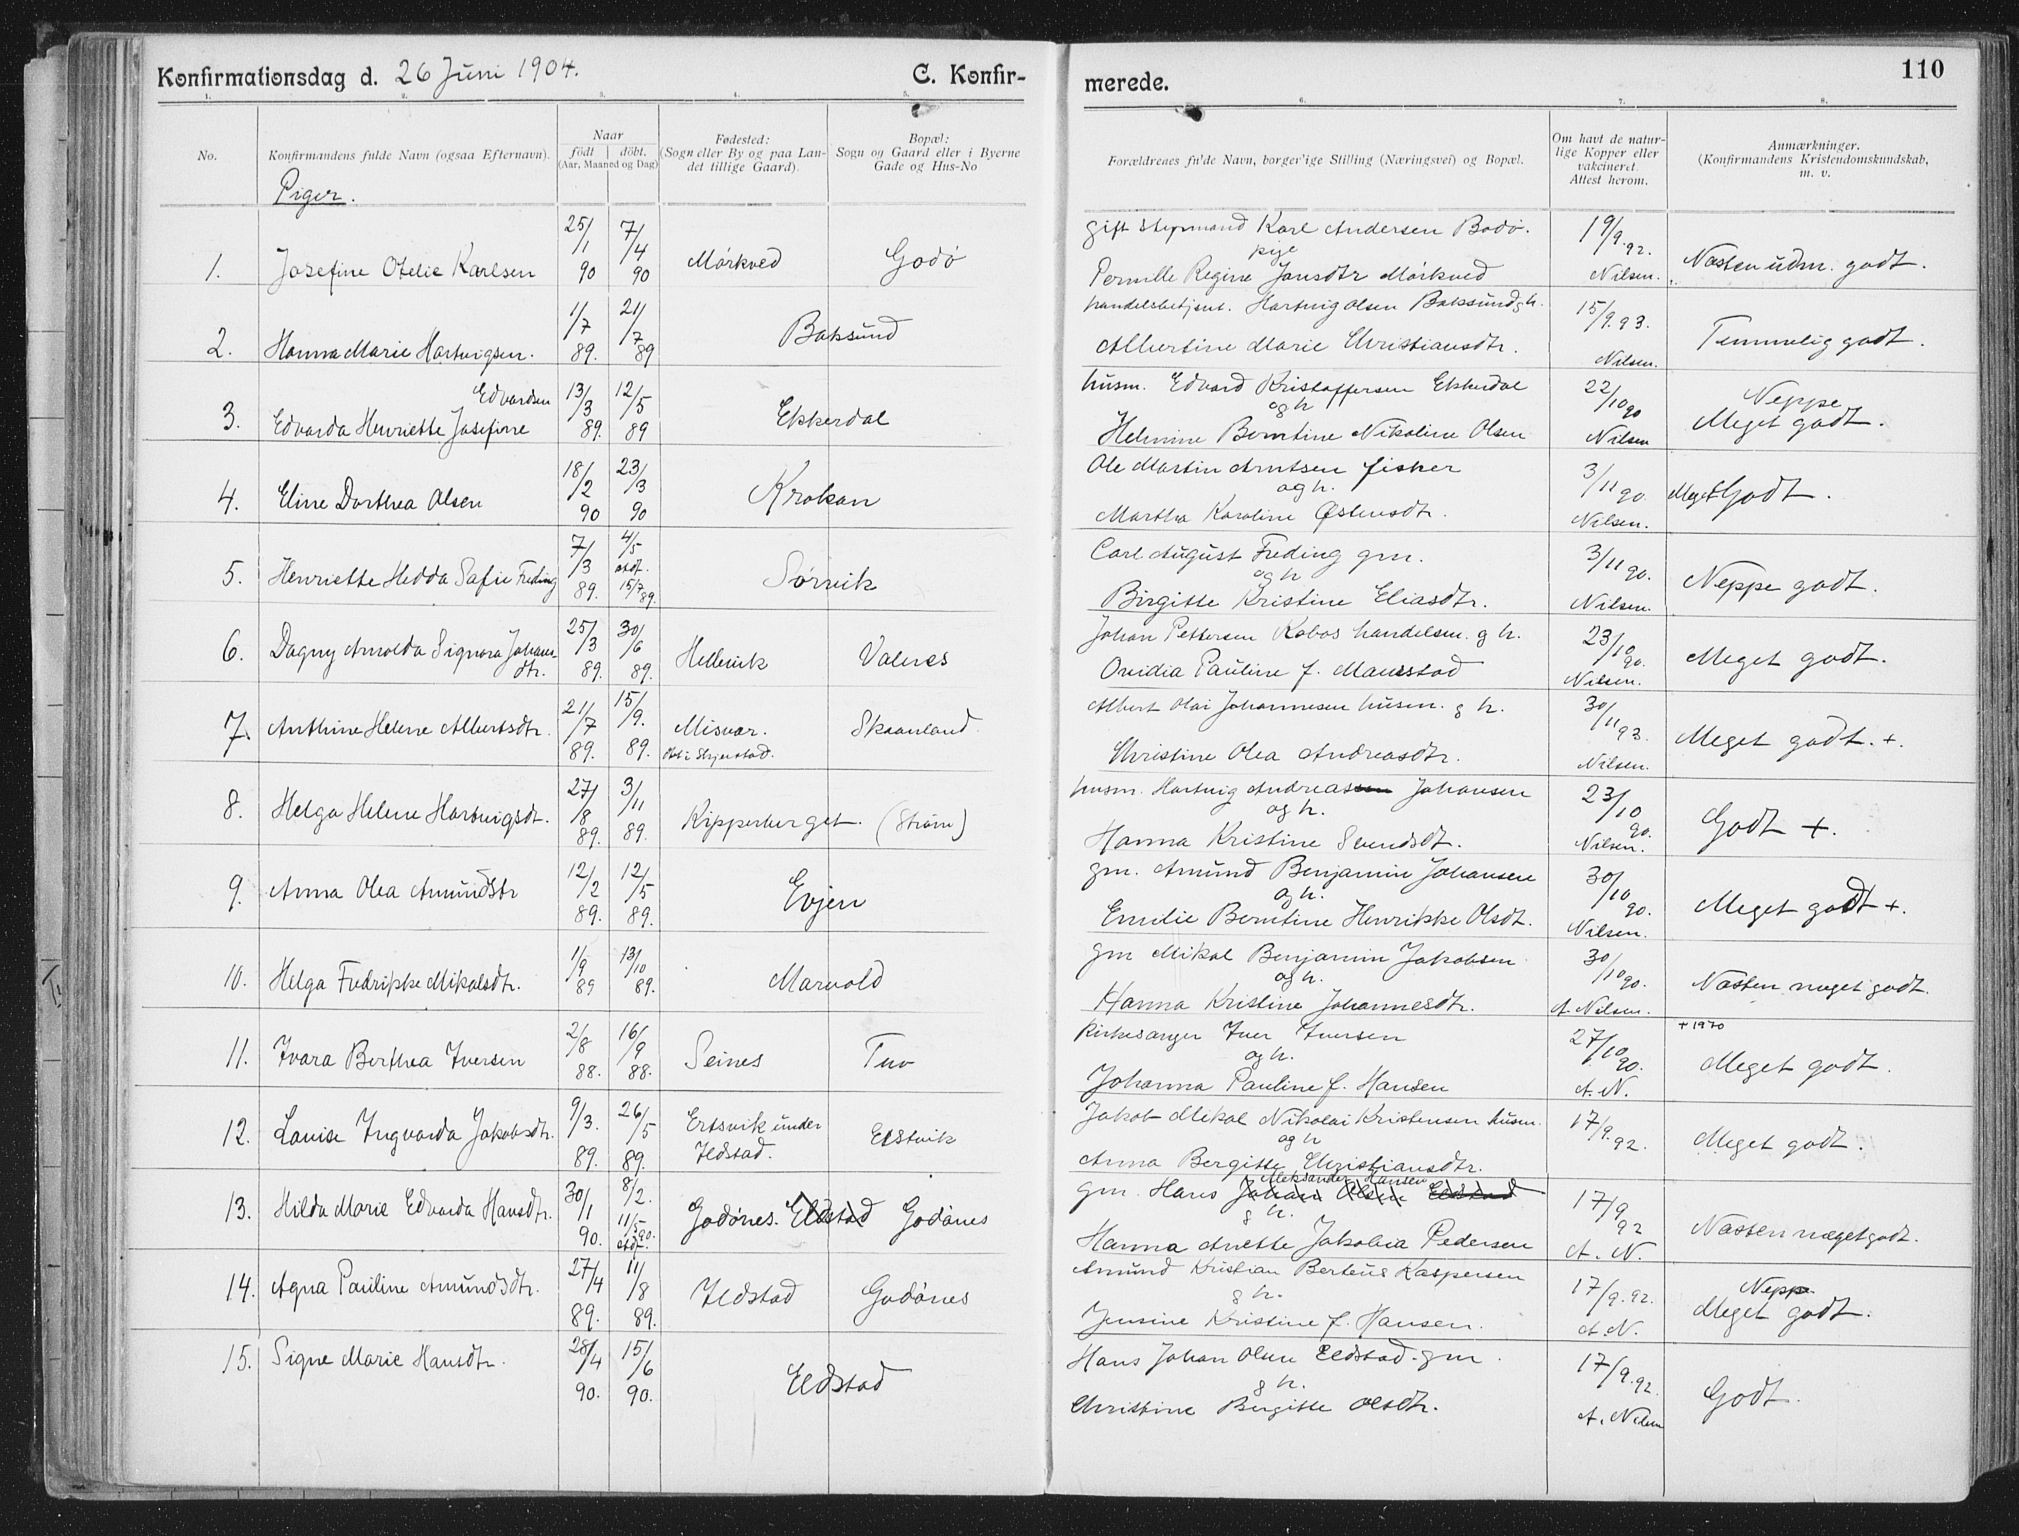 Konfirmationsdag d. 26 Juni 1904.
C. Konfir-
merede.
110
1. 2. 3. 4. 5. 6. 7. 8.
No.
Konfirmandens fulde Navn (ogsaa Efternavn).
Naar
födt | döbt.
(Aar, Maaned og Dag)
Fødested:
(Sogn eller By og paa Lan-
det tillige Gaard).
Bopæl:
Sogn og Gaard eller i Byerne
Gade og Hus-No
Forældrenes fulde Navn, borgerlige Stilling (Næringsvei) og Bopæl.
Om havt de natur-
lige Kopper eller
vakcineret.
Attest herom.
Anmærkninger.
(Konfirmandens Kristendomskundskab,
m. v.
Piger.
1. Josefine Otelie Karlsen 25/1 90 7/4 90 Mörkved Godö
gift styrmand Karl Andersen Bodö.
pige
Pernille Regine Jansdtr Mörkved
19/9.92. Nilsen.
Næsten udm. godt.
2. Hanna Marie Hartvigsen. 1/7 89. 21/7 89 Baksund
handelsbetjent. Hartvig Olsen Baksund g h.
Albertine Marie Christiansdtr.
15/9.93. Nilsen.
Temmelig godt.
3. Edvarda Henriette Josefine Edvardsen 13/3 89. 12/5 89 Ekkerdal
husm. Edvard Kristoffersen Ekkerdal
og h
Helmine Berntine Nikoline Olsen
22/10 90 Nilsen
Neppe
Meget godt.
4. Eline Dorthea Olsen 18/2 90 23/3 90 Krokan
Ole Martin Arntsen fisker
og h.
Martha Karoline Østensdtr.
3/11 90. Nilsen.
Meget Godt.
5. Henriette Hedda Sofie Freding 7/3 89. 4/5 stdf. 15/7 89. Sörvik
Carl August Freding gm.
og h
Birgitte Kristine Eliasdtr.
3/11 90. Nilsen.
Neppe godt.
6. Dagny Arnolda Signora Johans-
dtr. 25/3 89. 30/6 89. Hellevik Valnes
Johan Pettersen Kobos handelsm. g h.
Ovidia Pauline f. Mansstad
23/10 90. Nilsen.
Meget godt.
7. Anthine Helene Albertsdtr. 21/7 89. 15/9. 89. Misvær. Skaanland
Albert Olai Johannesen husm. g h.
Christine Olea Andreasdtr.
30/11 93. Nilsen.
Meget godt. +.
8. Helga Helene Hartvigsdt. 27/8 89. 3/11 89. Kipperberget. (Ström)
husm. Hartvig Andreassen Johansen
og h.
Hanna Kristine Svendsdt.
23/10 90. Nilsen.
Godt +.
9. Anna Olea Amundsdtr 12/2 89. 12/5 89. Evjen
gm. Amund Benjamin Johansen
og h.
Emilie Berntine Henrikke Olsdt.
30/10 90. Nilsen.
Meget godt +.
10. Helga Fredrikke Mikalsdtr. 1/9 89 13/10 89. Marvold
gm Mikal Benjamin Jakobsen
og h.
Hanna Kristine Johannesdtr.
30/10 90. A. Nilsen.
Næsten meget godt.
11. Ivara Berthea Iversen 2/8 88. 16/9 88. Seines Tuv
Kirkesanger Iver Iversen
og h.
Johanna Pauline f. Hansen
27/10 90. A. N.
+ 1970
Meget godt.
12. Lovise Ingvarda Jakobsdtr. 9/3. 89. 26/5 89. Ertsvik under
Ildstad. Elstvik
Jakob Mikal Nikolai Kristensen husm.
og h
Anna Bergitte Christiansdtr.
17/9. 92.
Meget godt.
13. Hilda Marie Edvarda Hansdtr. 30/1 90. 8/2. 11/5 90. stdf. Godönes. Eldstad Godönes
Aleksander Hansen
gm. Hans Johan Olsen Eldstad
g h.
Hanna Anette Jakobia Pedersen
17/9 92 A. N.
Næsten meget godt.
14. Agna Pauline Amundsdtr. 27/4 89. 11/8 89. Ildstad Godönes
Amund Kristian Berteus Kaspersen
g h.
Jensine Kristine f. Hansen.
17/9.92. A.N.
Neppe
Meget godt.
15. Signe Marie Hansdtr. 28/4 90. 15/6 90. Eldstad
Hans Johan Olsen Eldstad. gm.
g h.
Christine Birgitte Olsdtr.
17/9.92. A. Nilsen
Godt.